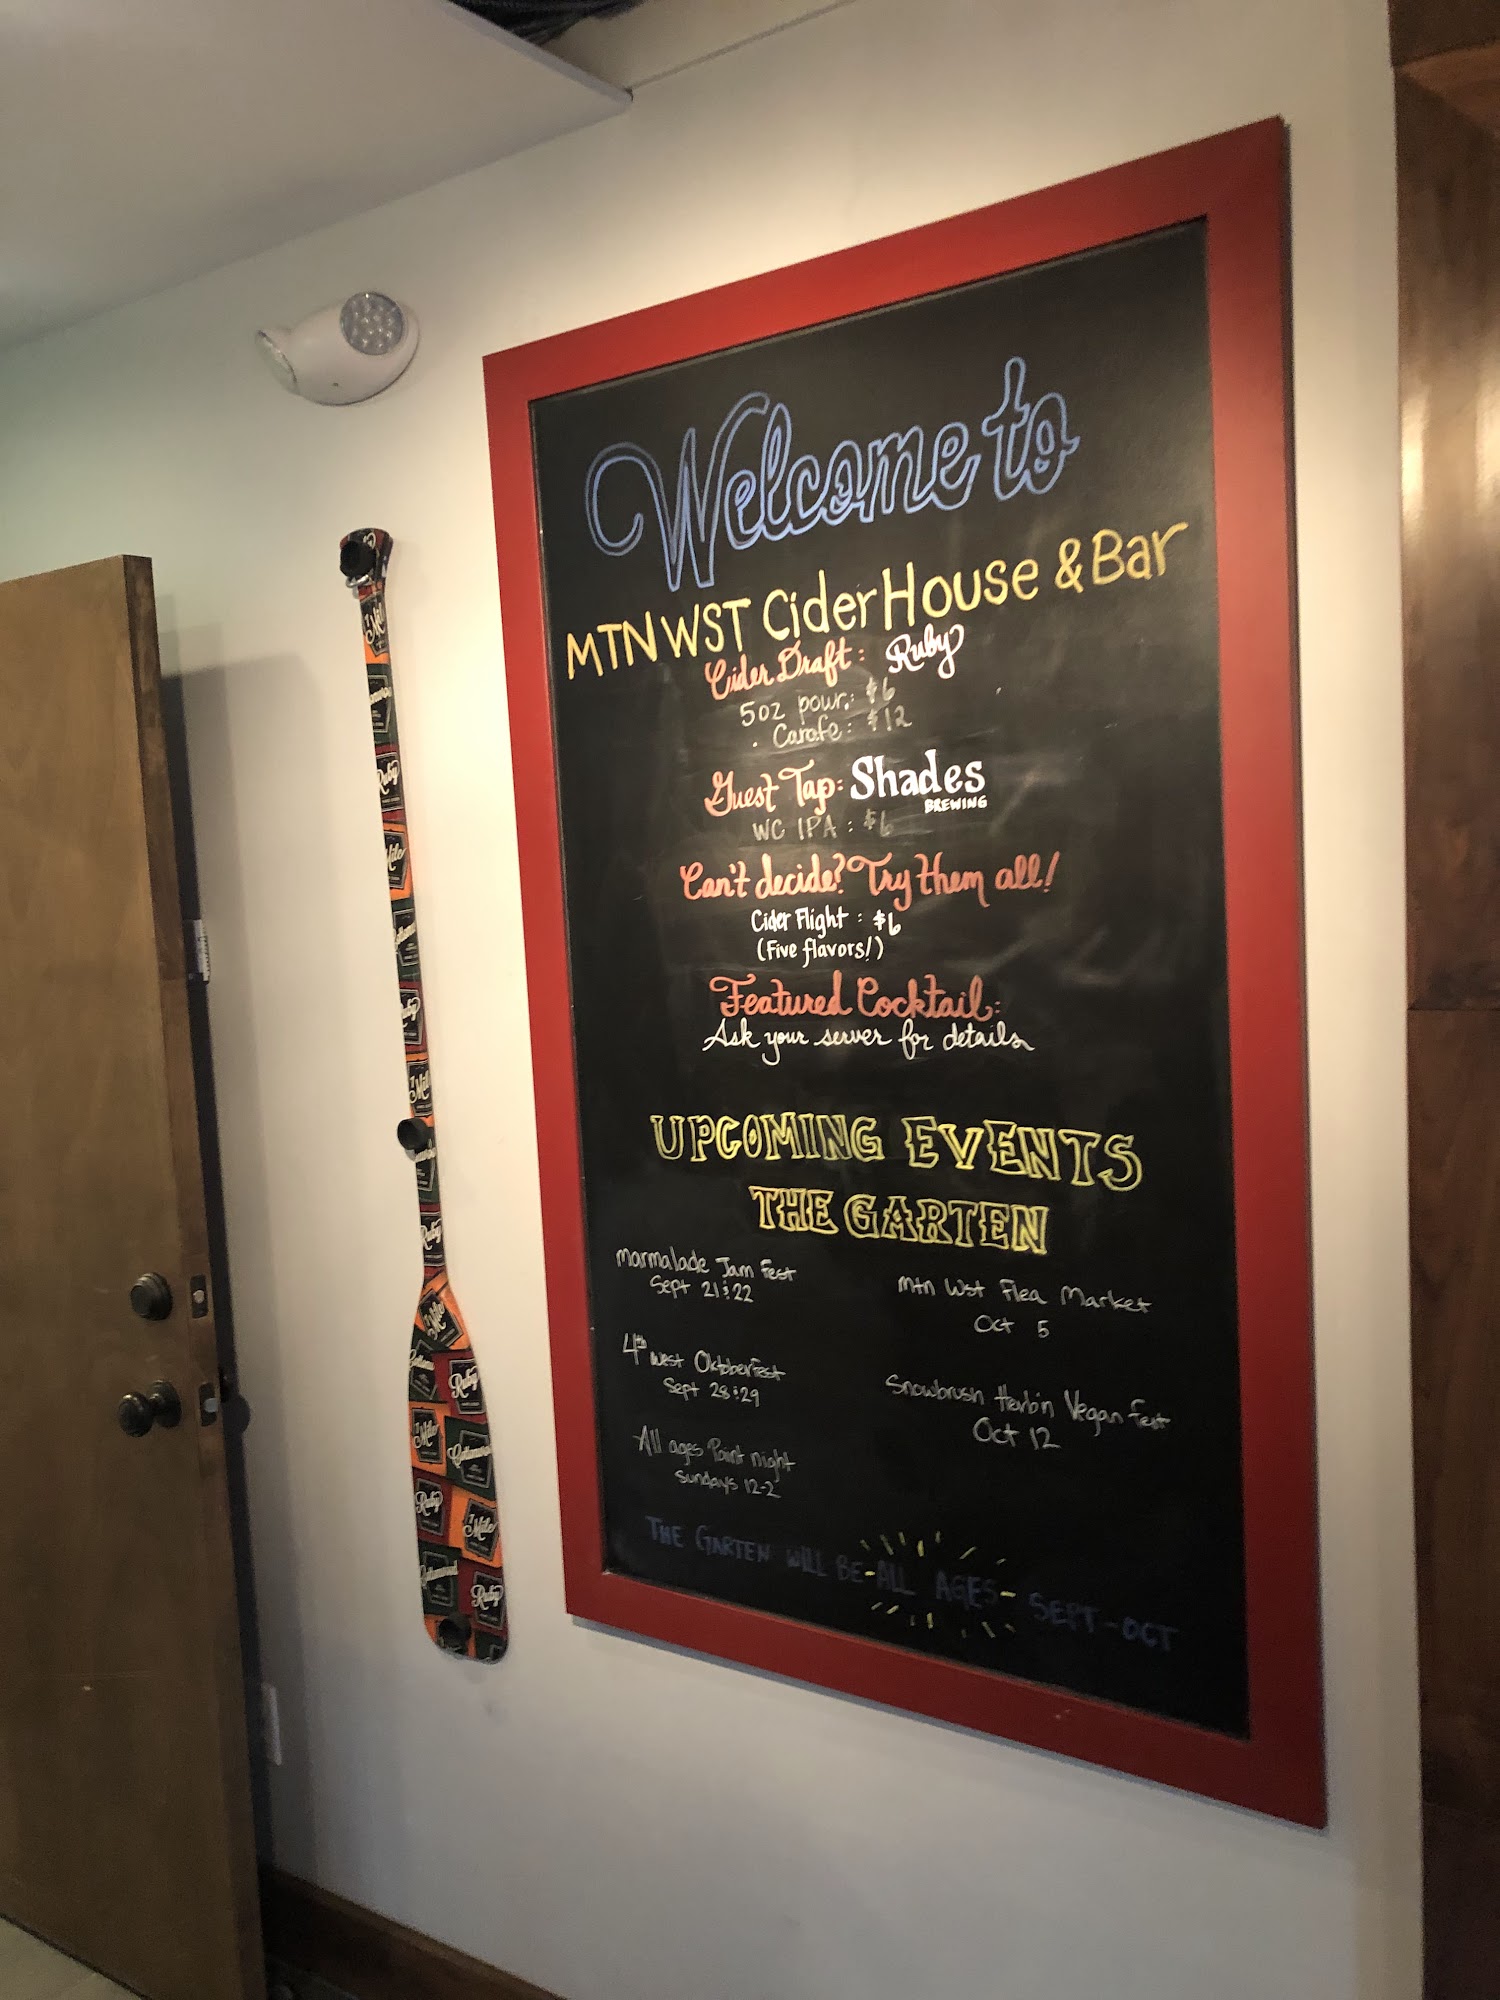 Welcome to
MTN WST Cider House & Bar
Cider Draft: Ruby
5oz pour: $6
Carafe: $12
Guest Tap: Shades
BREWING
WC IPA: $6
Can't decide? Try them all!
Cider Flight: $6
(Five flavors!)
Featured Cocktail:
Ask your server for details
UPCOMING EVENTS
THE GARTEN
Marmalade Jam Fest
Sept 21 & 22
4th West Oktoberfest
Sept 28 & 29
All ages Paint night
Sundays 12-2
Mtn Wst Flea Market
Oct 5
Snowbrush Herb'n Vegan Fest
Oct 12
THE GARTEN WILL BE -ALL AGES- SEPT-OCT
7 Mile
Cottonwood
Ruby
Mile
Ruby
7 Mile
Ruby
7 Mile
Ruby
7 Mile
Cottonwood
Ruby
7 Mile
Cottonwood
Ruby